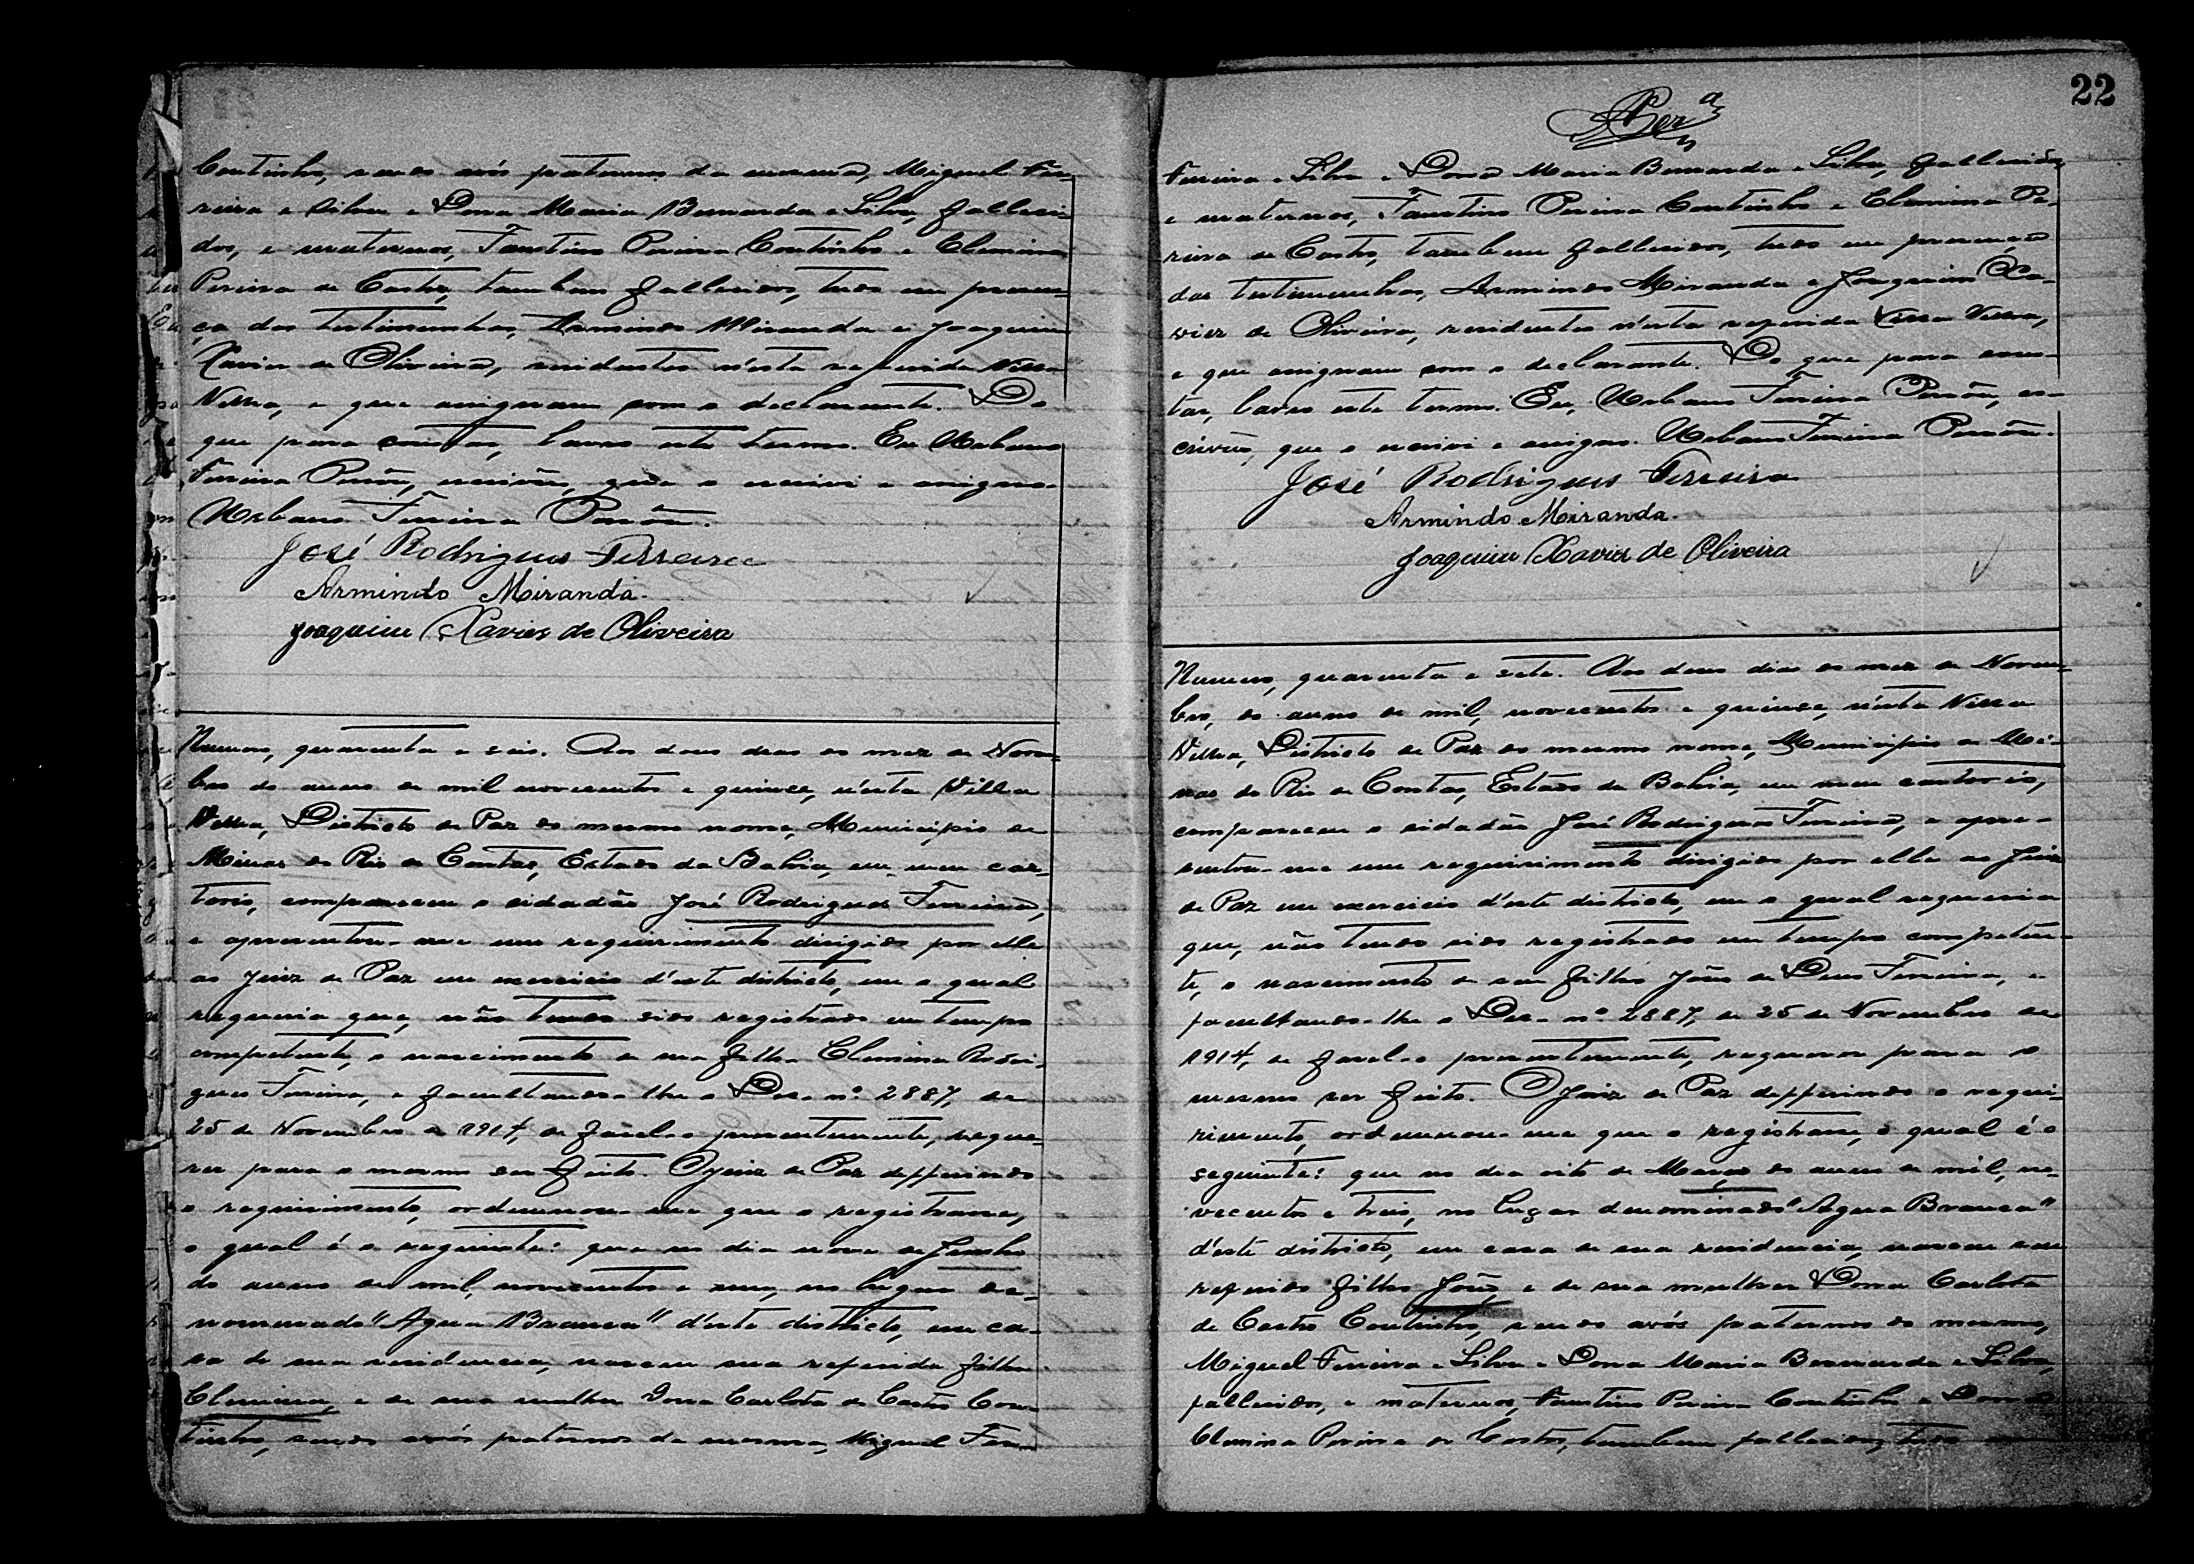 Coutinho, sendo avós paternos da mesma, Miguel Fer-
reira e Silva e Dona Maria Bernarda e Silva, falleci-
dos, e maternos, Faustino Pereira Coutinho e Clemina
Pereira de Castro, tambem fallecidos, tudo em presen-
ça das testimunhas, Armindo Miranda e Joaquim
Xavier de Oliveira, residentes n'esta referida Villa
Velha, e que assignam com o declarante. Do
que para constar, lavro este termo. Eu Urbano
Ferreira Pessôa, escrivão, que o escrivi e assigno.
Urbano Ferreira Pessôa.
José Rodrigues Ferreira
Armindo Miranda.
Joaquim Xavier de Oliveira
Numero, quarenta e seis. Aos dous dias do mez de Novem-
bro do anno de mil novecentos e quinze, n'esta Villa
Velha, Districto de Paz do mesmo nome, Municipio de
Minas do Rio de Contas, Estado da Bahia, em meu car-
torio, compareceu o cidadão José Rodrigues Ferreira,
e apresentou-me um requirimento dirigido por elle
ao Juiz de Paz em exercicio d'este districto, em o qual
requeria que, não tendo sido registrado em tempo
competente, o nascimento de sua filha Clemina Rodri-
gues Ferreira, e facultando-lhe o Dec. nº 2887, de
25 de Novembro de 1914, de fazel-o presentemente, reque-
rer para o mesmo ser feito. O Juiz de Paz defferindo
o requirimento, ordennou-me que o registrasse,
o qual é o seguinte: que no dia nove de Junho
do anno de mil, novecentos e um, no lugar de-
nominado "Agua Branca" d'este districto, em ca-
sa de sua residencia, nasceu sua referida filha
Clemina, e de sua mulher Dona Carlota de Castro Cou-
tinho, sendo avós paternos da mesma, Miguel Fer-
22
Ferreira e Silva e Dona Maria Bernarda e Silva, fallecidos,
e maternos, Faustino Pereira Coutinho e Clemina Pe-
reira de Castro, tambem fallecidos, tudo em presença
das testimunhas, Armindo Miranda e Joaquim Xa-
vier de Oliveira, residentes n'esta referida Villa Velha,
e que assignam com o declarante. Do que para cons-
tar, lavro este termo. Eu, Urbano Ferreira Pessôa, es-
crivão, que o escrivi e assigno. Urbano Ferreira Pessôa.
José Rodrigues Ferreira
Armindo Miranda.
Joaquim Xavier de Oliveira
Numero, quarenta e sete. Aos dous dias do mez de Novem-
bro, do anno de mil, novecentos e quinze, n'esta Villa
Velha, Districto de Paz do mesmo nome, Municipio de Mi-
nas do Rio de Contas, Estado da Bahia, em meu cartorio,
compareceu o cidadão José Rodrigues Ferreira, e apre-
sentou-me um requirimento dirigido por elle ao Juiz
de Paz em exercicio d'este districto, em o qual requeria
que, não tendo sido registrado em tempo competen-
te, o nascimento de seu filho João de Deus Ferreira, e
facultando-lhe o Dec. nº 2887, de 25 de Novembro de
1914, de fazel-o presentemente, requerer para o
mesmo ser feito. O Juiz de Paz defferindo o requi-
rimento, ordennou-me que o registrasse, o qual é o
seguinte: que no dia oito de Março do anno de mil, no-
vecentos e tres, no lugar denominado "Agua Branca"
d'este districto, em casa de sua residencia, nasceu seu
referido filho João, e de sua mulher Dona Carlota
de Castro Coutinho, sendo avós paternos do mesmo,
Miguel Ferreira e Silva e Dona Maria Bernarda e Silva,
fallecidos, e maternos, Faustino Pereira Coutinho e Dona
Clemina Pereira de Castro, tambem fallecidos, tudo